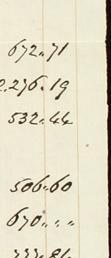 672.71
2.276.19
532.44
506.60
670. . .